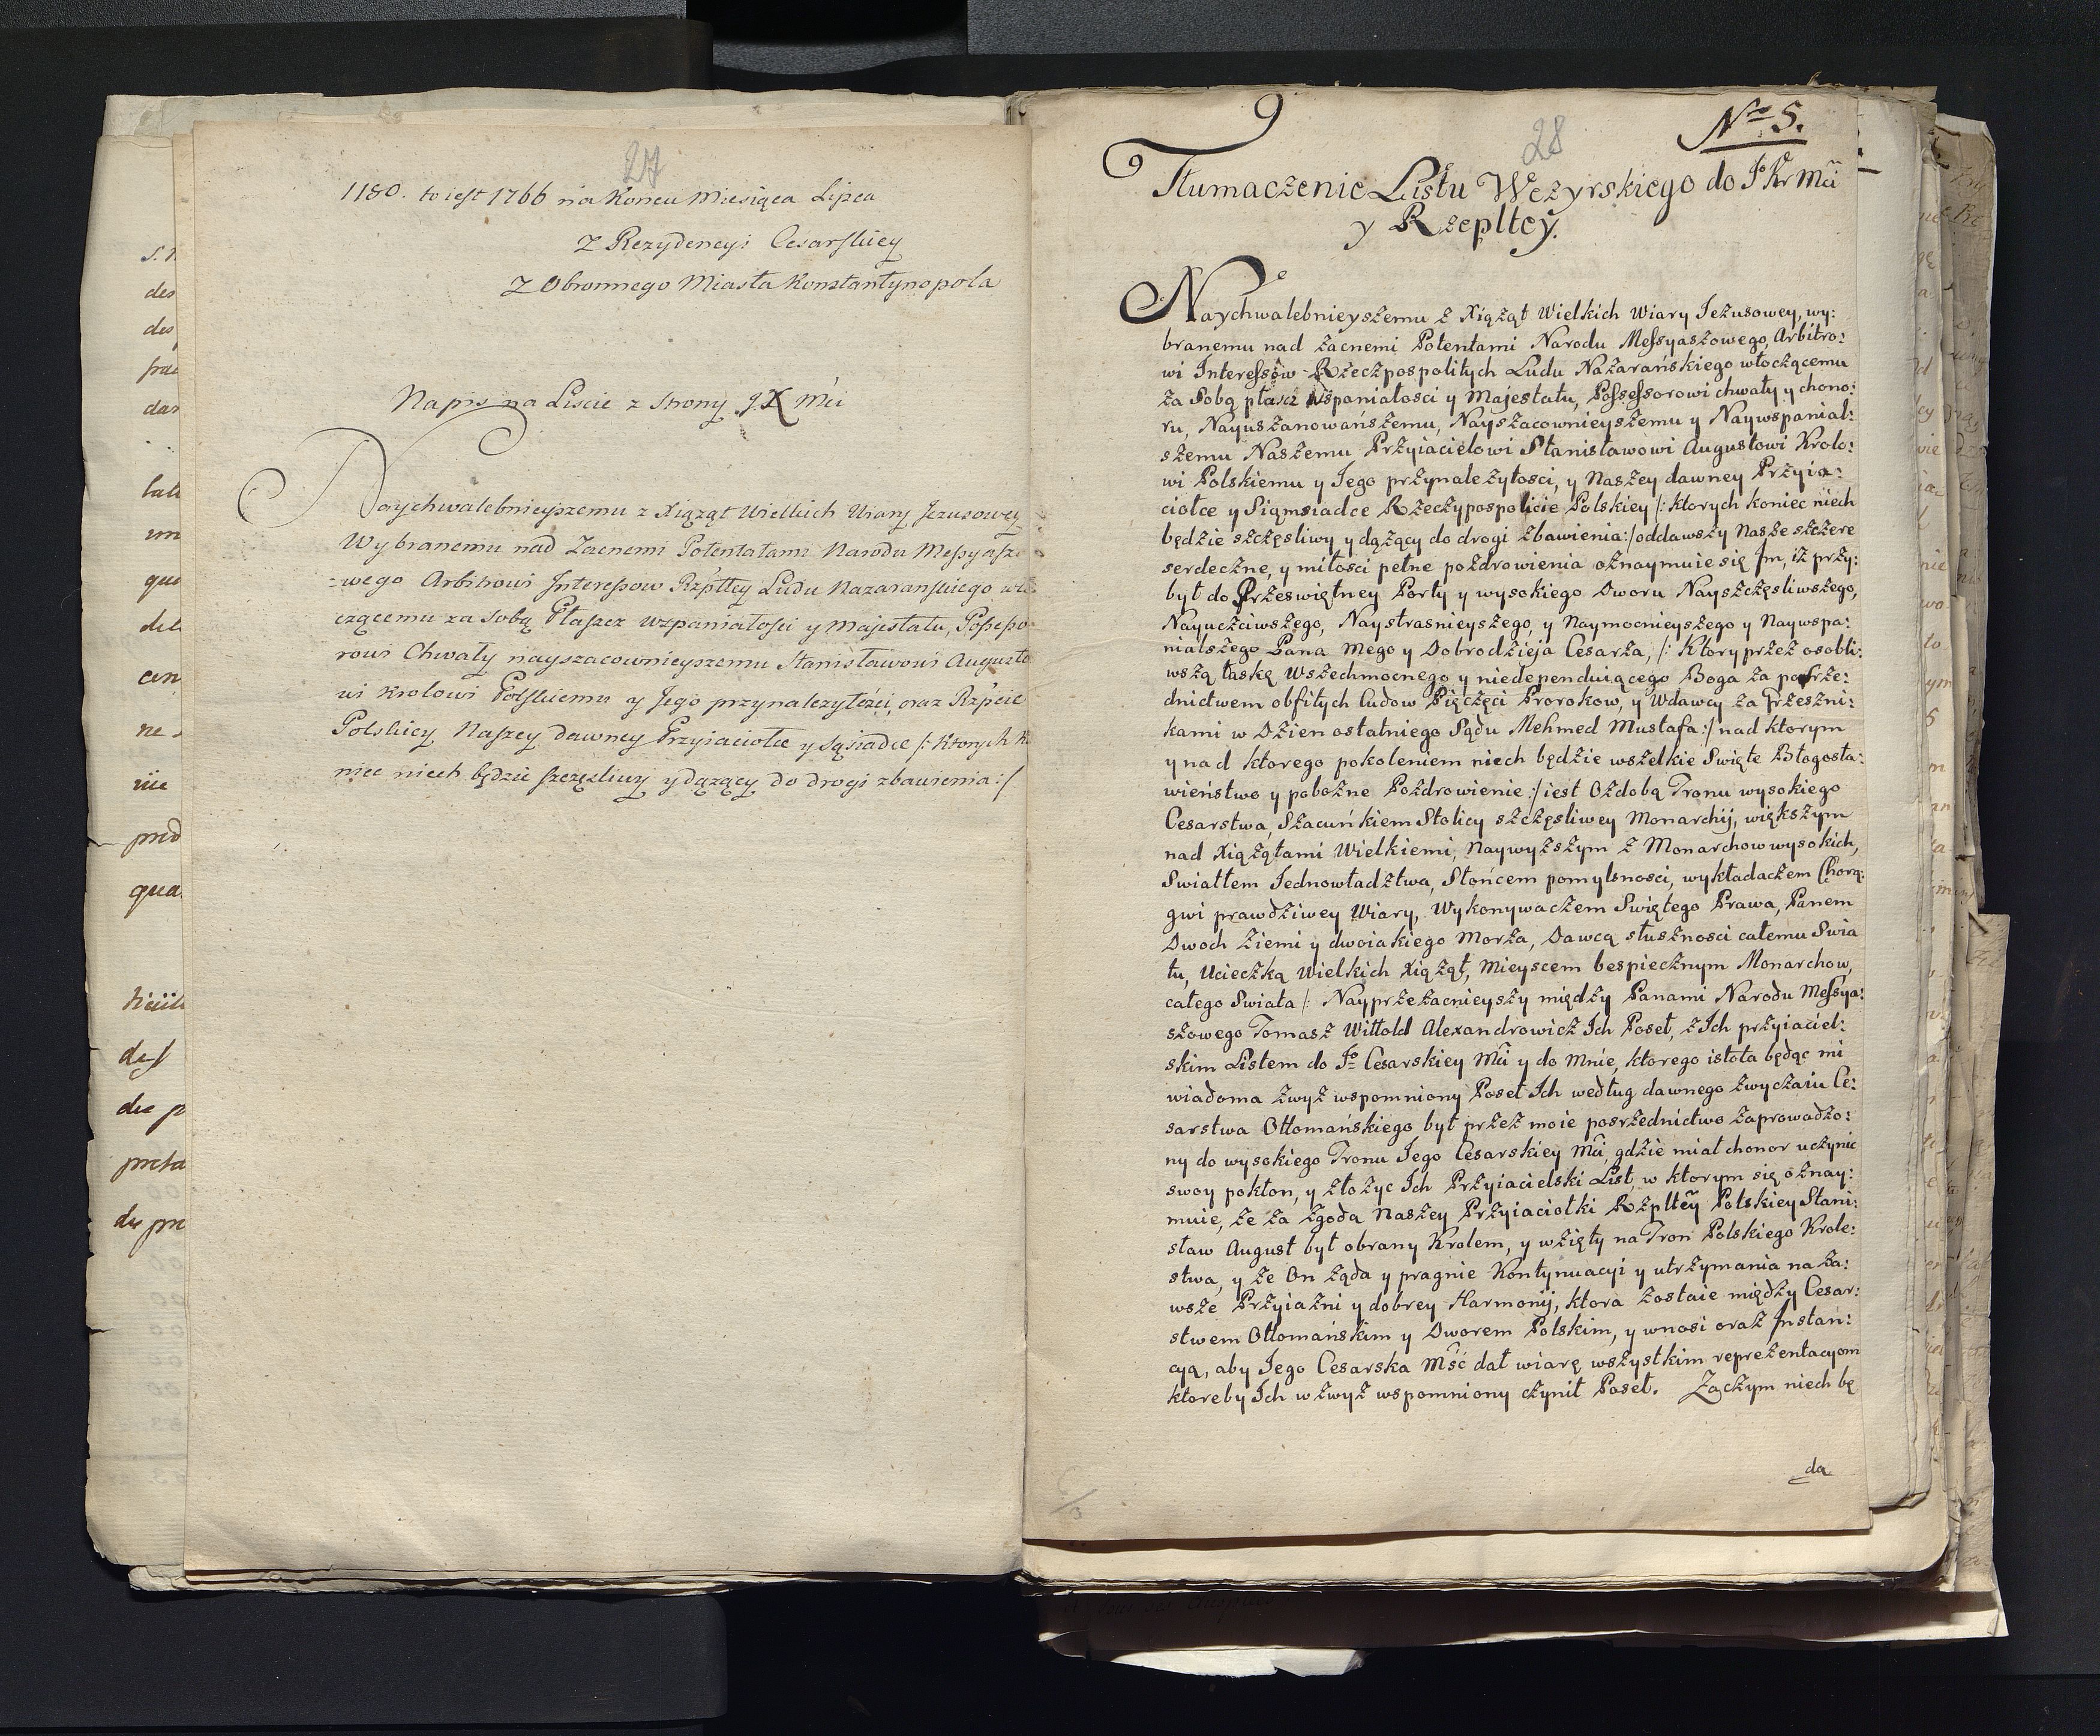 27
1180. to iest 1766 na Koncu Miesiąca Lipca
Z Rezydencyi Cesarskiey
Z Obronnego Miasta Konstantynopola
Napis na Liscie z strony JX Mci
Naychwalebnieyszemu z Xiążąt Wielkich Wiary Jezusowey
Wybranemu nad Zacnemi Potentatami Narodu Messyaszo
=wego Arbitrowi Interessow Rzpltey Ludu Nazaranskiego wło
czącemu za sobą Płaszcz wspaniałosci y Majestatu, Possesso
rowi Chwały nayszacownieyszemu Stanisławowi Augusto
wi Krolowi Polskiemu y Jego przynalezytości, oraz Rzpcie
Polskiey Naszey dawney Przyiaciołce y Sąsiadce /: Ktorych Ko
niec niech będzie szczęsliwy y dążący do drogi zbawienia :/
28
No 5.
Tłumaczenie Listu Wezyrskiego do Jo Kr Mci
y Rzepltey.
Naychwalebnieyszemu z Xiążąt Wielkich Wiary Jezusowey, wy:
branemu nad zacnemi Potentami Narodu Messyaszowego, Arbitro:
wi Interessów Rzeczpospolitych Ludu Nazarańskiego włoczącemu
za Sobą płasz wspaniałosci y Majestatu, Possessorowi chwały y chono:
ru, Nayuszanowańszemu, Nayszacownieyszemu y Naywspanial:
szemu Naszemu Przyiacielowi Stanisławowi Augustowi Krolo:
wi Polskiemu y Jego przynalezytosci, y Naszey dawney Przyia:
ciołce y Sigmsiadce Rzeczypospolicie Polskiey /: ktorych koniec niech
będzie szczęsliwy y dążący do drogi zbawienia :/ oddawszy Nasze szczere
serdeczne, y miłosci pełne pozdrowienia oznaymuie się Im, iz przy:
był do Przeswiętney Porty y wysokiego Dworu Nayszczęsliwszego,
Nayuczciwszego, Naystrasnieyszego, y Naymocnieyszego y Naywspa:
nialszego Pana Mego y Dobrodzieja Cesarza, /: Ktory przez osobli:
wszą łaskę Wszechmocnego y niedependuiącego Boga za posrze:
dnictwem obfitych ludow Pięczęci Prorokow, y Wdawcy za Grzeszni:
kami w Dzien ostatniego Sądu Mehmed Mustafa :/ nad ktorym
y nad ktorego pokoleniem niech będzie wszelkie Swięte Błogosła:
wieństwo y pobozne Pozdrowienie :/ iest Ozdobą Tronu wysokiego
Cesarstwa, Szacuńkiem Stolicy szczęsliwey Monarchij, większym
nad Xiążętami Wielkiemi, Naywyzszym z Monarchow wysokich,
Swiatłem Jednowładztwa, Słońcem pomylsnosci, wykładaczem Chorą:
gwi prawdziwey Wiary, Wykonywaczem Swiętego Prawa, Panem
Dwoch Ziemi y dwoiakiego Morza, Dawcą słusznosci całemu Swia
tu, Ucieczką Wielkich Xiążąt, Mieyscem bespiecznym Monarchow,
całego Swiata /: Nayprzezacnieyszy między Panami Narodu Messya:
szowego Tomasz Wittold Alexandrowicz Ich Poseł, z Ich przyiaciel:
skim Listem do Jo Cesarskiey Mci y do Mnie, ktorego istota będąc mi
wiadoma zwyz wspomniony Poseł Ich według dawnego zwyczaiu Ce:
sarstwa Ottomańskiego był przez moie posrzednictwo zaprowadzo:
ny do wysokiego Tronu Jego Cesarskiey Mci, gdzie miał chonor uczynic
swoy pokłon, y złozyc Ich Przyiacielski List, w ktorym się oznay:
muie, ze za zgoda Naszey Przyiaciołki Rzpltey Polskiey Stani:
sław August był obrany Krolem, y wzięty na Tron Polskiego Krole:
stwa, y ze On ząda y pragnie Kontynuacyi y utrzymania na za:
wsze Przyiazni y dobrey Harmonij, ktora zostaie między Cesar:
stwem Ottomańskim y Dworem Polskim, y wnosi oraz Instan:
cyą, aby Jego Cesarska Mść dał wiarę wszystkim reprezentacyom
ktoreby Ich wzwyz wspomniony czynił Poseł. Zaczym niech bę
da